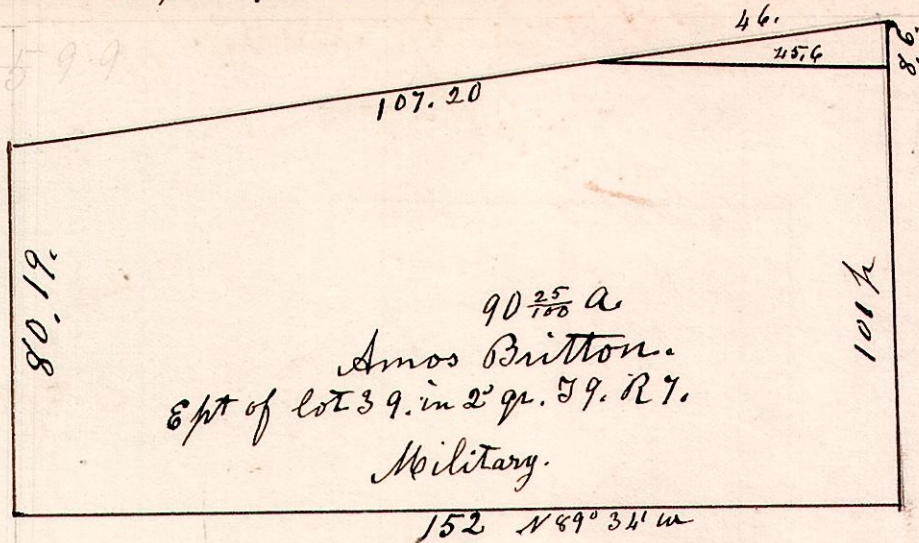 46.
45,6
8,6.
599
107.20
80,19.
101 p
90 25/100 A
Amos Britton.
E pt of lot 39. in 2d qr. T9. R7.
Military.
152 N 89° 34' W